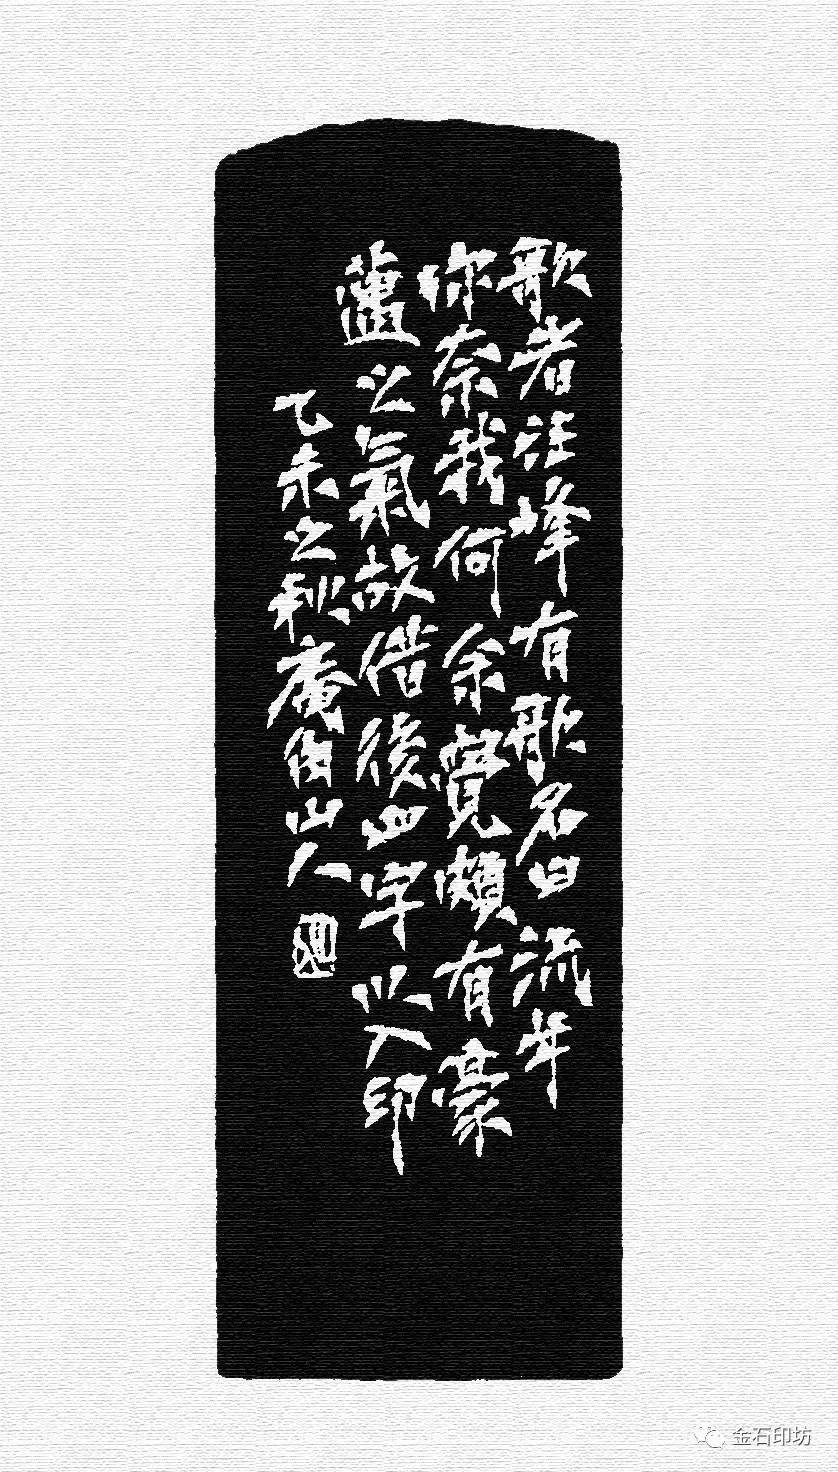 歌者汪峰有歌名曰流年
你奈我何余覺頗有豪
之氣故借後四字以入印
乙未之秋庵山人
金石印坊